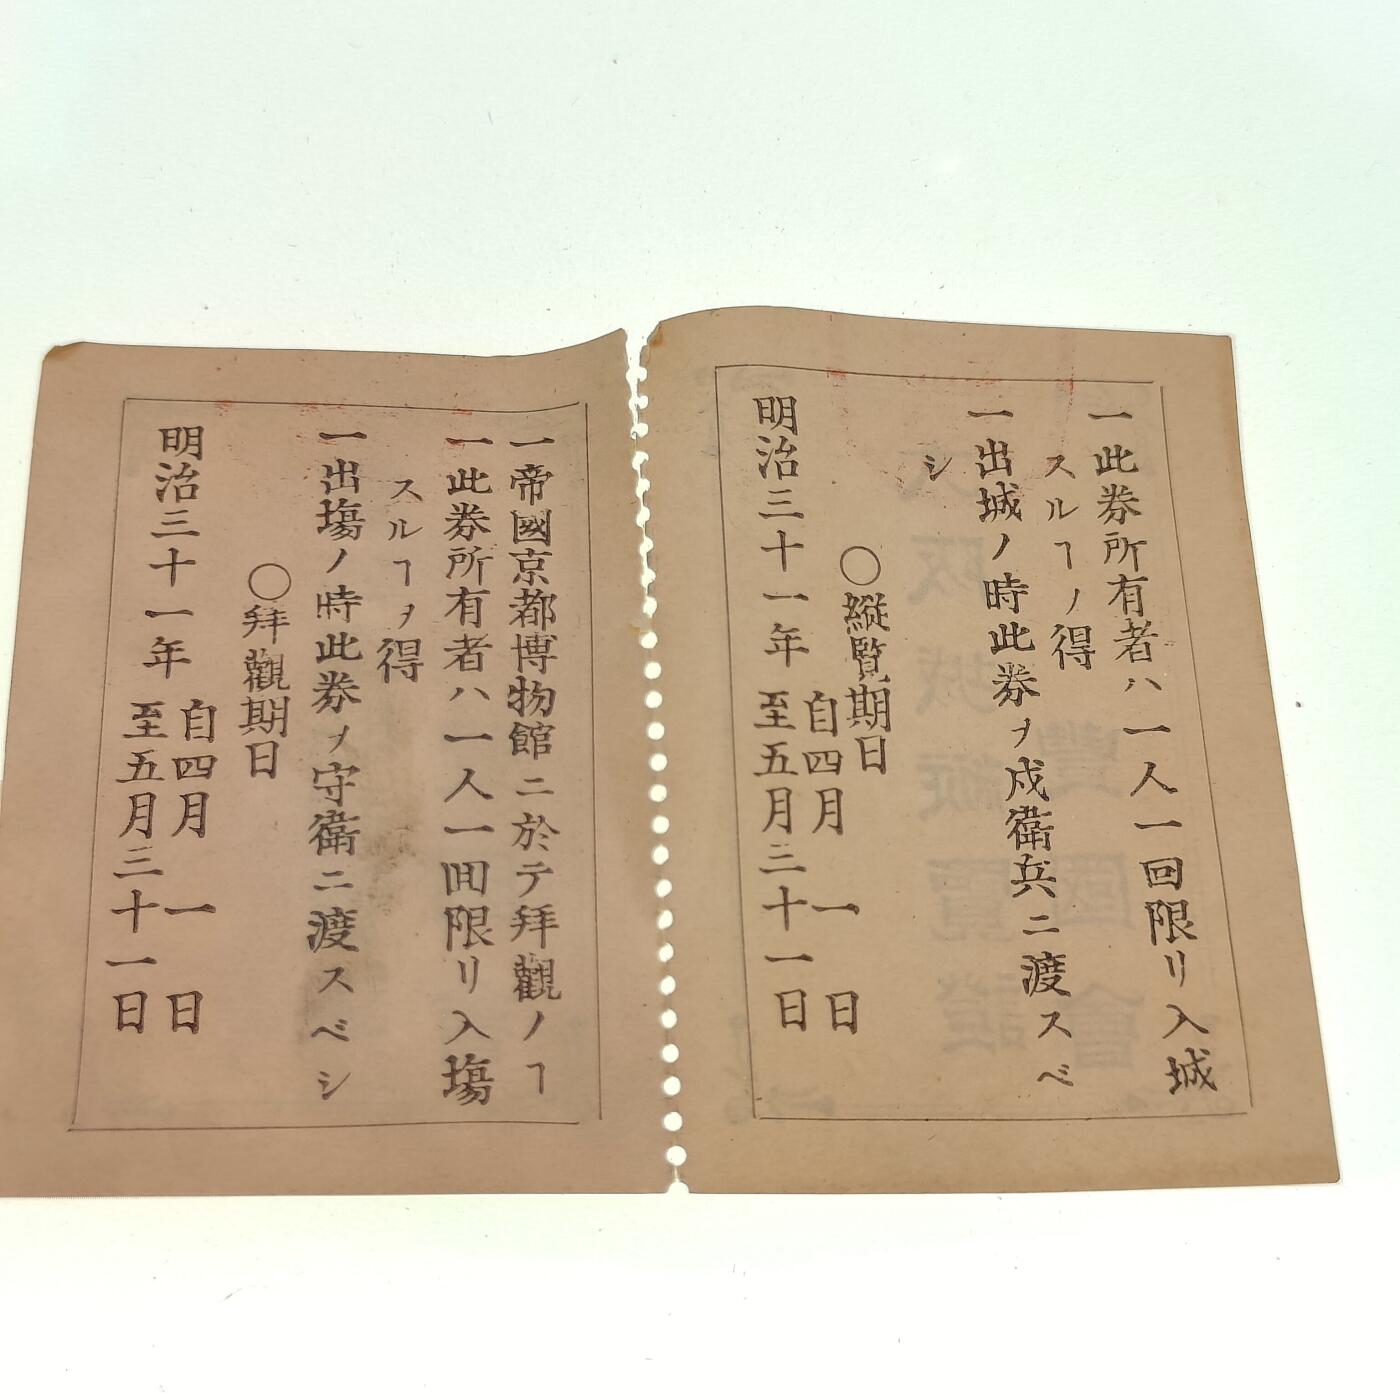 一此券所有者ハ一人一回限リ入城
スルヿノ得
一出城ノ時此券ヲ戍衛兵ニ渡スベ
シ
○縦覧期日
明治三十一年 自四月一日
至五月三十一日
一帝國京都博物館ニ於テ拜觀ノヿ
一此券所有者ハ一人一囘限リ入塲
スルヿヲ得
一出塲ノ時此券ヲ守衛ニ渡スベシ
○拜觀期日
明治三十一年 自四月一日
至五月三十一日